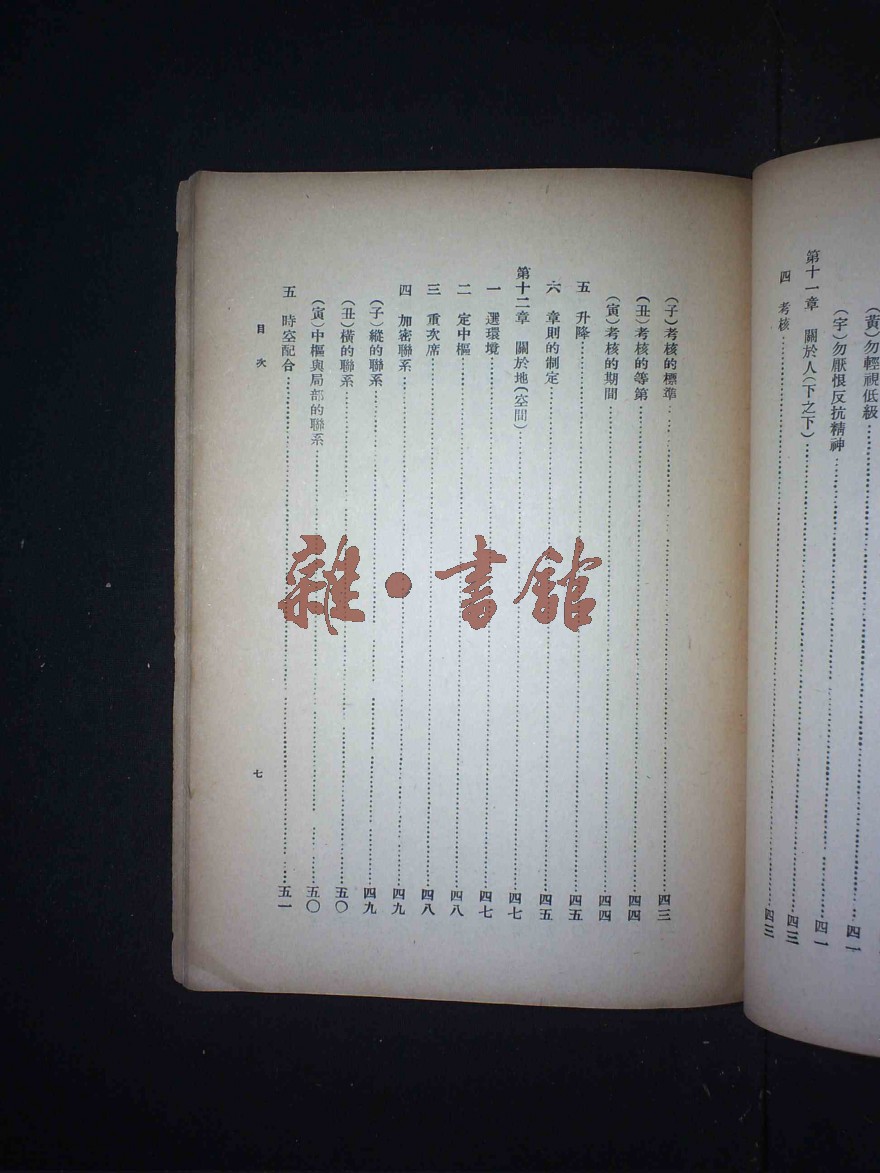 (黃)勿輕視低級……四一
(宇)勿厭恨反抗精神……四一
第十一章 關於人(下之下)……四三
四 考核……四三
(子)考核的標準……四三
(丑)考核的等第……四四
(寅)考核的期間……四四
五 升降……四五
六 章則的制定……四五
第十二章 關於地(空間)……四七
一 選環境……四七
二 定中樞……四八
三 重次席……四八
四 加密聯系……四九
(子)縱的聯系……四九
(丑)橫的聯系……五〇
(寅)中樞與局部的聯系……五〇
五 時空配合……五一
目次
七
雜·書館